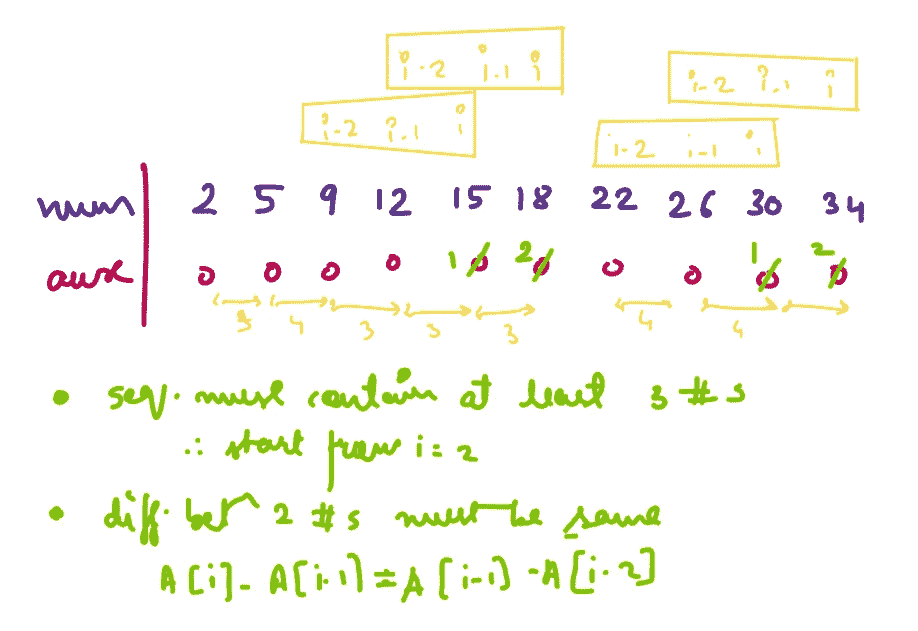 i-2 i-1 i
i-2 i-1 i
i-2 i-1 i
i-2 i-1 i
num 2 5 9 12 15 18 22 26 30 34
aux 0 0 0 0 1 0 2 0 0 0 1 0 2 0
3 4 3 3 3 4 4
• seq. must contain at least 3 #s
∴ start from i = 2
• diff. bet 2 #s must be same
A[i] - A[i-1] = A[i-1] - A[i-2]